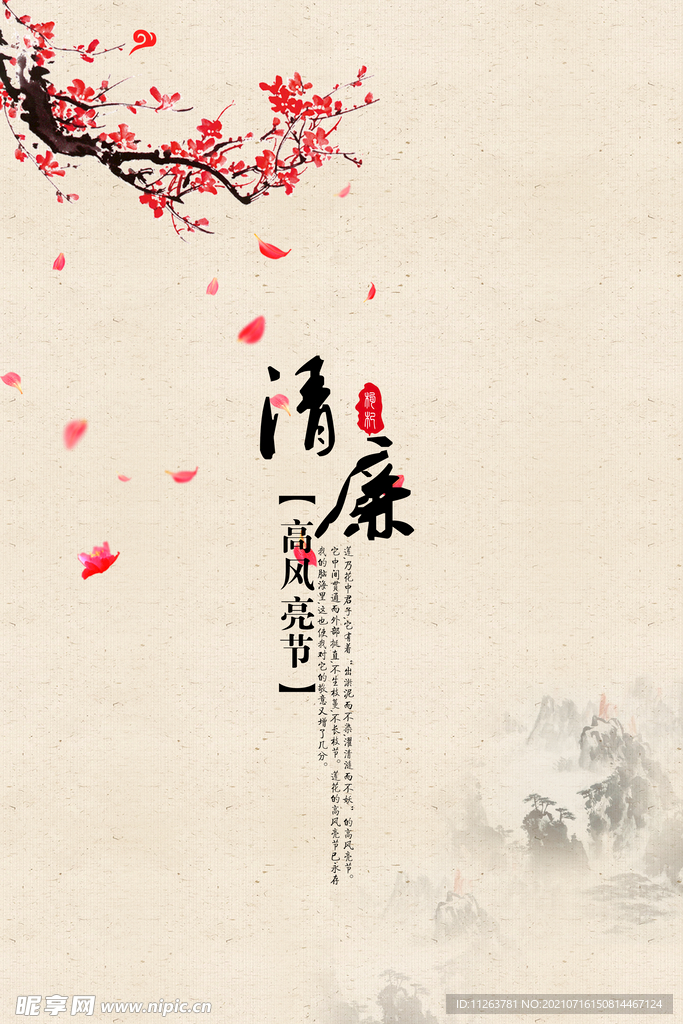 清廉
枸杞
【高风亮节】
莲，乃花中君子，它有着“出淤泥而不染，濯清涟而不妖”的高风亮节。
它中间贯通而外部挺直，不生枝蔓，不长枝节。莲花的高风亮节已永存
我的脑海里，这也使我对它的敬意又增了几分。
昵享网 www.nipic.cn
ID:11263781 NO:20210716150814467124